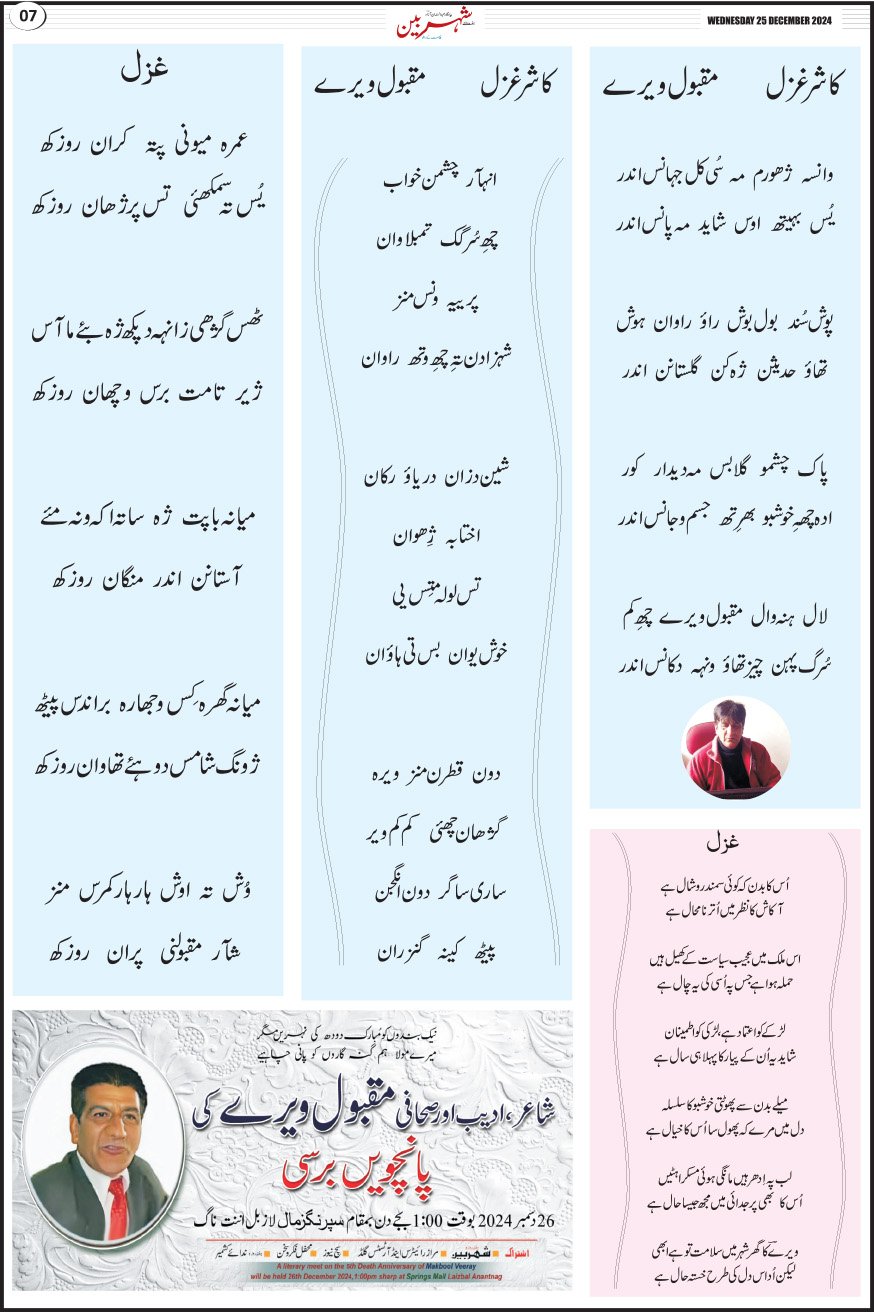 07
شہربین
WEDNESDAY 25 DECEMBER 2024
کاشر غزل مقبول ویرے
وانسہ ژھورم مہ سُی کل جہانس اندر
یُس بہیتھ اوس شاید مہ پانس اندر
پوش سُند بول بوش راؤ راوان ہوش
تھاؤ حدیثن ژہ کن گلستانن اندر
پاک چشمو گلابس مہ دیدار کور
ادہ چھہِ خوشبو بھرِتھ جسم و جانس اندر
لال ہنہ وال مقبول ویرے چھِ کم
سُرگ پہن چیز تھاؤ ونہہ دکانس اندر
کاشر غزل مقبول ویرے
انہآر چشمن خواب
چھِ سُرگک تمبلاوان
پرییہ ونس منز
شہزادن تہِ چھِ وتھ راوان
شین دزان دریاؤ رکان
اختابہ ژھِوان
تس لولہ متِس یی
خوش یوان بس تی ہاؤان
دون قطرن منز ویرہ
گژھان چھئی کم کم ویر
ساری ساگر دون انگجن
پیٹھ کینہ گنزران
غزل
عمرہ میونی پتہ کران روزکھ
یُس تہ سمکھئی تس پرژھان روزکھ
ٹھس گژھی زانہہ دپکھ ژہ بئے ما آس
ژیر تامت برس وچھان روزکھ
میانہ باپت ژہ ساتہ اکہ ونہ مئے
آستانن اندر منگان روزکھ
میانہ گھرہ کِس وجھارہ براندس پیٹھ
ژونگ شامس دوہئے تھاوان روزکھ
وُش تہ اوش ہار ہار کمرس منز
شآر مقبولنی پران روزکھ
غزل
اُس کا بدن کہ کوئی سمندر وشال ہے
آکاش کا نظر میں اُترنا محال ہے
اس ملک میں عجیب سیاست کے کھیل ہیں
حملہ ہوا ہے جس پہ اُسی کی یہ چال ہے
لڑکے کو اعتماد ہے، لڑکی کو اطمینان
شاید یہ اُن کے پیار کا پہلا ہی سال ہے
میلے بدن سے پھوٹتی خوشبو کا سلسلہ
دل میں مرے کہ پھول سا اُس کا خیال ہے
لب پہ اِدھر ہیں مانگی ہوئی مسکراہٹیں
اُس کا بھی پر جدائی میں مجھ جیسا حال ہے
ویرےؔ کا گھر شہر میں سلامت تو ہے ابھی
لیکن اُداس دل کی طرح خستہ حال ہے
نیک بندوں کو مُبارک دودھ کی نہریں مگر
میرے مولا ہم گنہ گاروں کو پانی چاہیے
شاعر، ادیب اور صحافی مقبول ویرے کی
پانچویں برسی
26 دسمبر 2024 بوقت 1:00 بجے دن بمقام سپرنگز مال لازبل اننت ناگ
اشتراک شہربین مراز رائیٹرس اینڈ آرٹسٹس گلڈ سچ نیوز محفل فکر و فن ندائے کشمیر
A literary meet on the 5th Death Anniversary of Makbool Veeray
will be held 26th December 2024,1:00pm sharp at Springs Mall Laizbal Anantnag